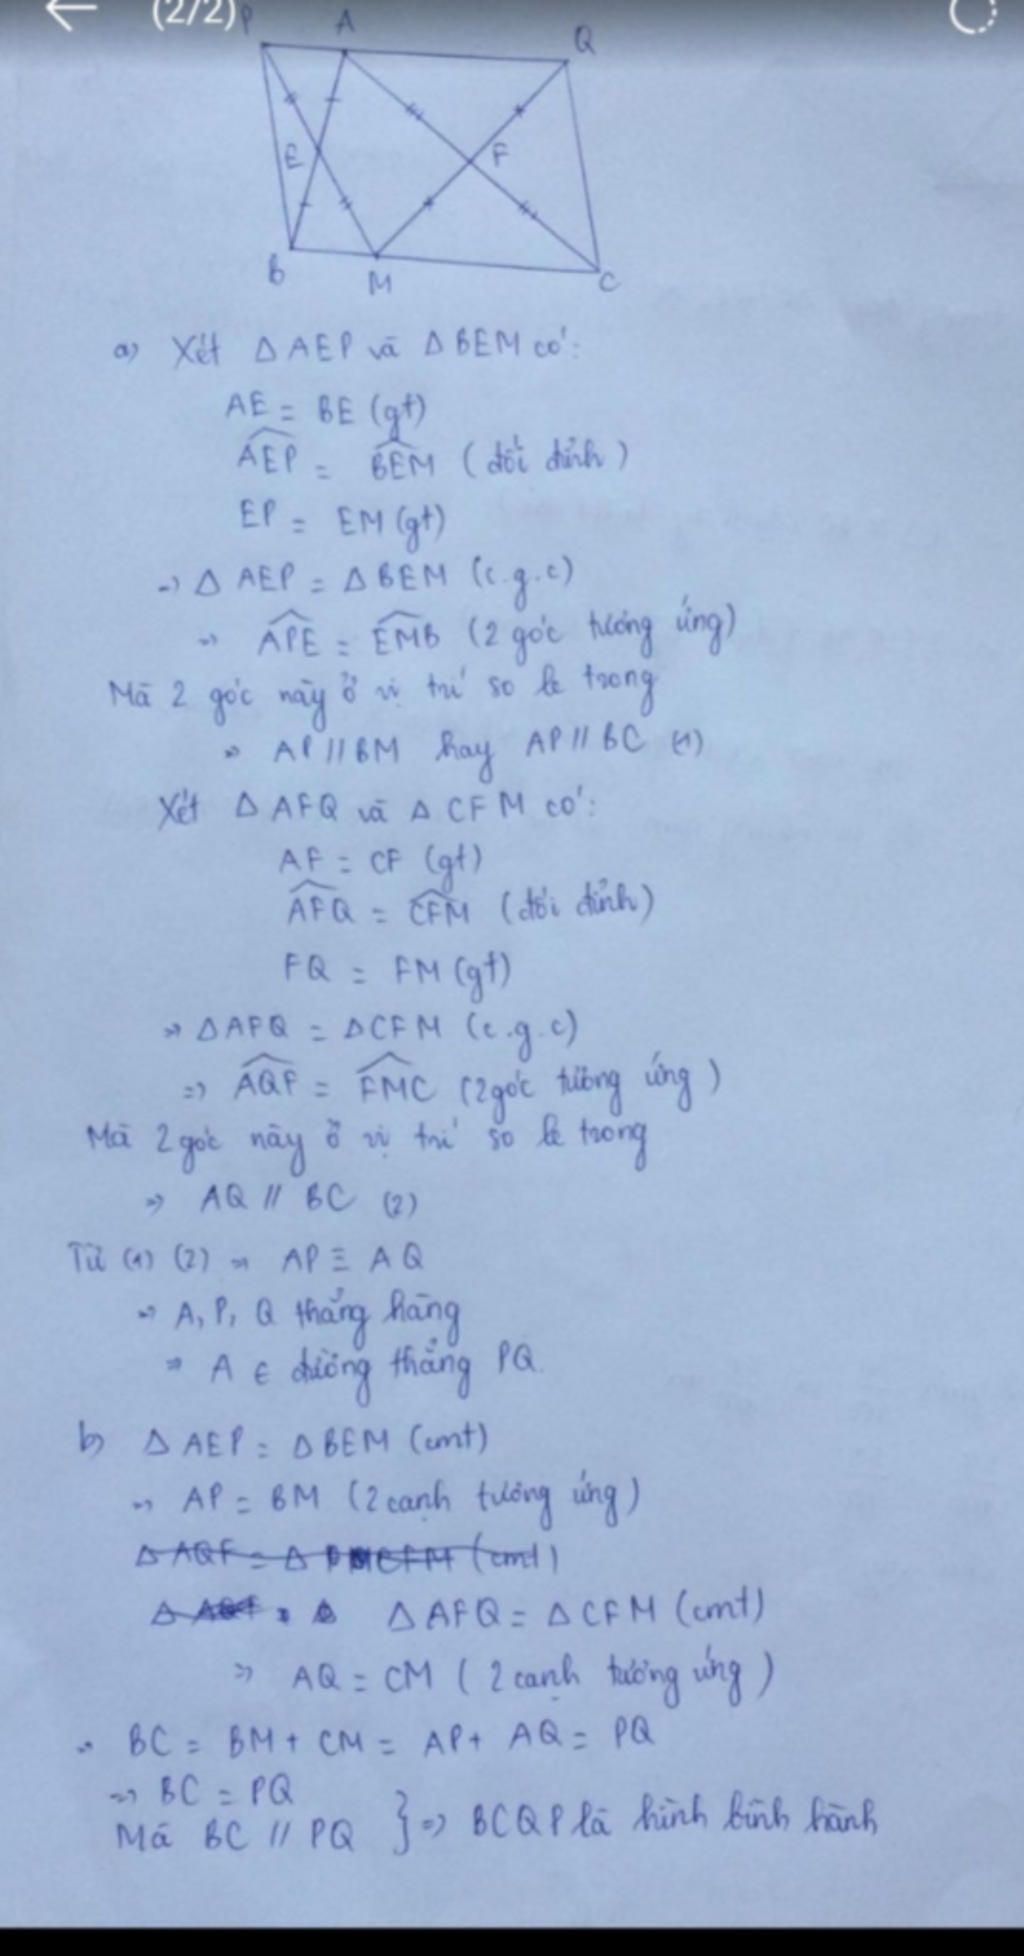 (2/2)
P A Q
E F
B M C
a) Xét Δ AEP và Δ BEM có:
AE = BE (gt)
AEP = BEM (đối đỉnh)
EP = EM (gt)
=> Δ AEP = Δ BEM (c.g.c)
=> APE = EMB (2 góc tương ứng)
Mà 2 góc này ở vị trí so le trong
=> AP // BM hay AP // BC (1)
Xét Δ AFQ và Δ CFM có:
AF = CF (gt)
AFQ = CFM (đối đỉnh)
FQ = FM (gt)
=> Δ AFQ = Δ CFM (c.g.c)
=> AQF = FMC (2 góc tương ứng)
Mà 2 góc này ở vị trí so le trong
=> AQ // BC (2)
Từ (1) (2) => AP ≡ AQ
=> A, P, Q thẳng hàng
=> A ∈ đường thẳng PQ.
b) Δ AEP = Δ BEM (cmt)
=> AP = BM (2 cạnh tương ứng)
Δ AFQ = Δ CFM (cmt)
=> AQ = CM (2 cạnh tương ứng)
=> BC = BM + CM = AP + AQ = PQ
=> BC = PQ
Mà BC // PQ } => BCQP là hình bình hành